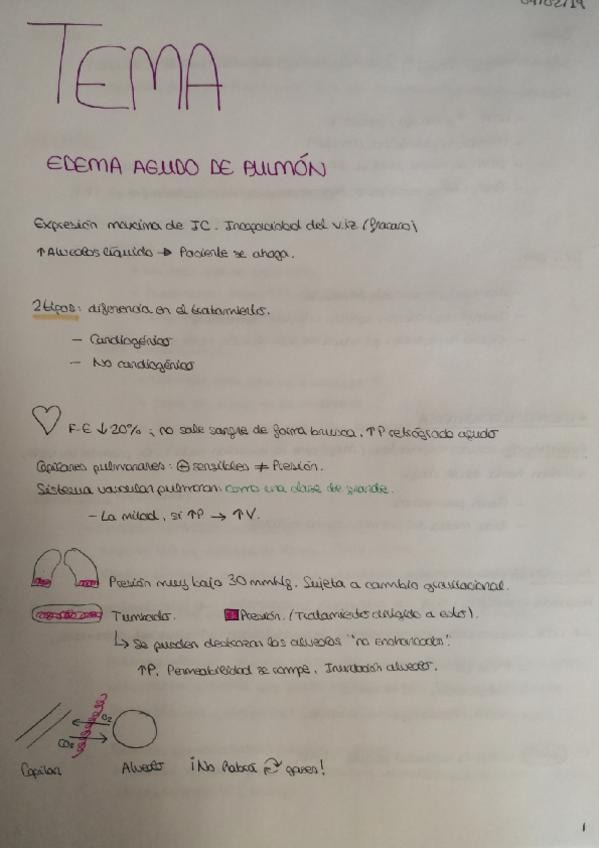 04/02/19
TEMA
EDEMA AGUDO DE PULMÓN
Expresión maxima de IC. Incapacidad del v.iz (fracaso)
↑Alveolos líquido → Paciente se ahoga.
2 tipos: diferencia en el tratamiento.
- Cardiogénico
- No cardiogénico
F-E ↓20%; no sale sangre de forma brusca, ↑P retrógrado agudo
Capilares pulmonares: ⊖ sensibles ≠ Presión.
Sistema vascular pulmonar: como una clase de grande.
- La mitad, si ↑P → ↑V.
Presión muy bajo 30 mmHg. Sujeta a cambio gravitacional.
Tumbado. Presión. (Tratamiento dirigido a esto).
↳ Se pueden destrozar los alveolos "no encharcados".
↑P. Permeabilidad se rompe. Inundación alveolo.
O2
CO2
Capilar Alveolo ¡No habrá gases!
1